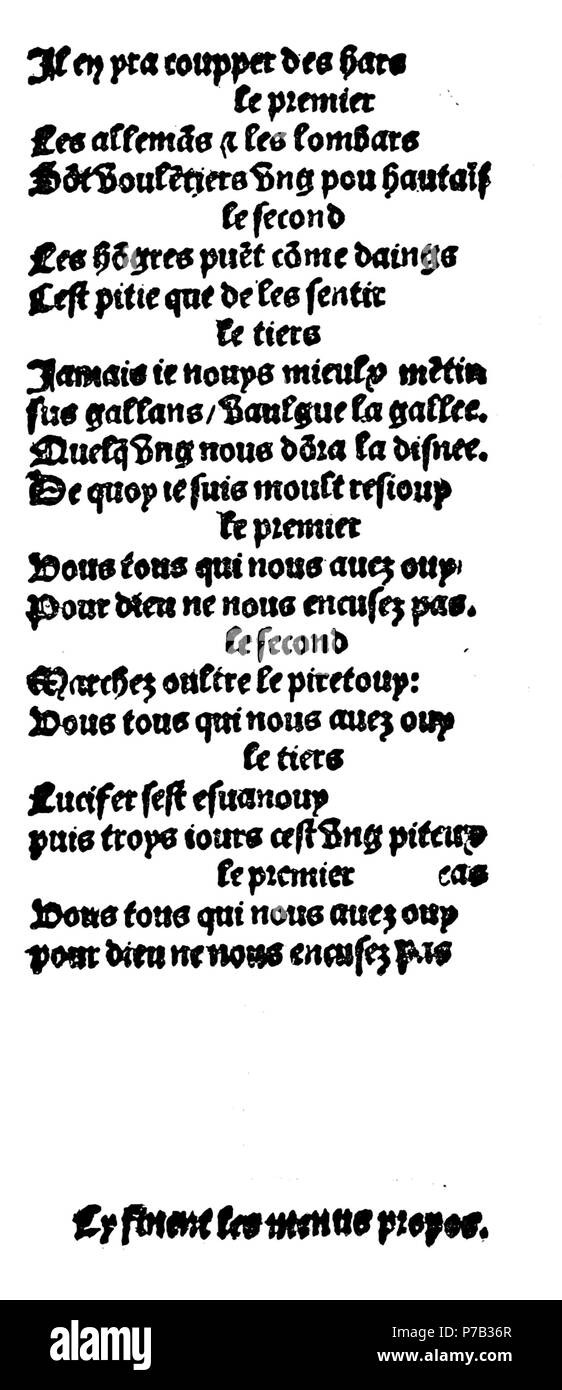 Il en yra coupper des hars
le premier
Les allemãs ⁊ les lombars
Sõt voulẽtiers vng pou hautaĩs
le second
Les hõgres puẽt cõme daings
Cest pitie que de les sentir
le tiers
Jamais ie nouys mieulx mẽtir
sus gallans/ vaulgue la gallee.
Quelq̃ vng nous dõra la disnee.
De quoy ie suis moult resiouy
le premier
Vous tous qui nous auez ouy
Pour dieu ne nous encusez pas.
le second
Marchez oultre le piretouy:
Vous tous qui nous auez ouy
le tiers
Lucifer sest esuanouy
puis troys iours cest vng piteux
le premier cas
Vous tous qui nous auez ouy
pour dieu ne nous encusez pas
Cy finent les menus propos.
alamy
Image ID: P7B36R
www.alamy.com